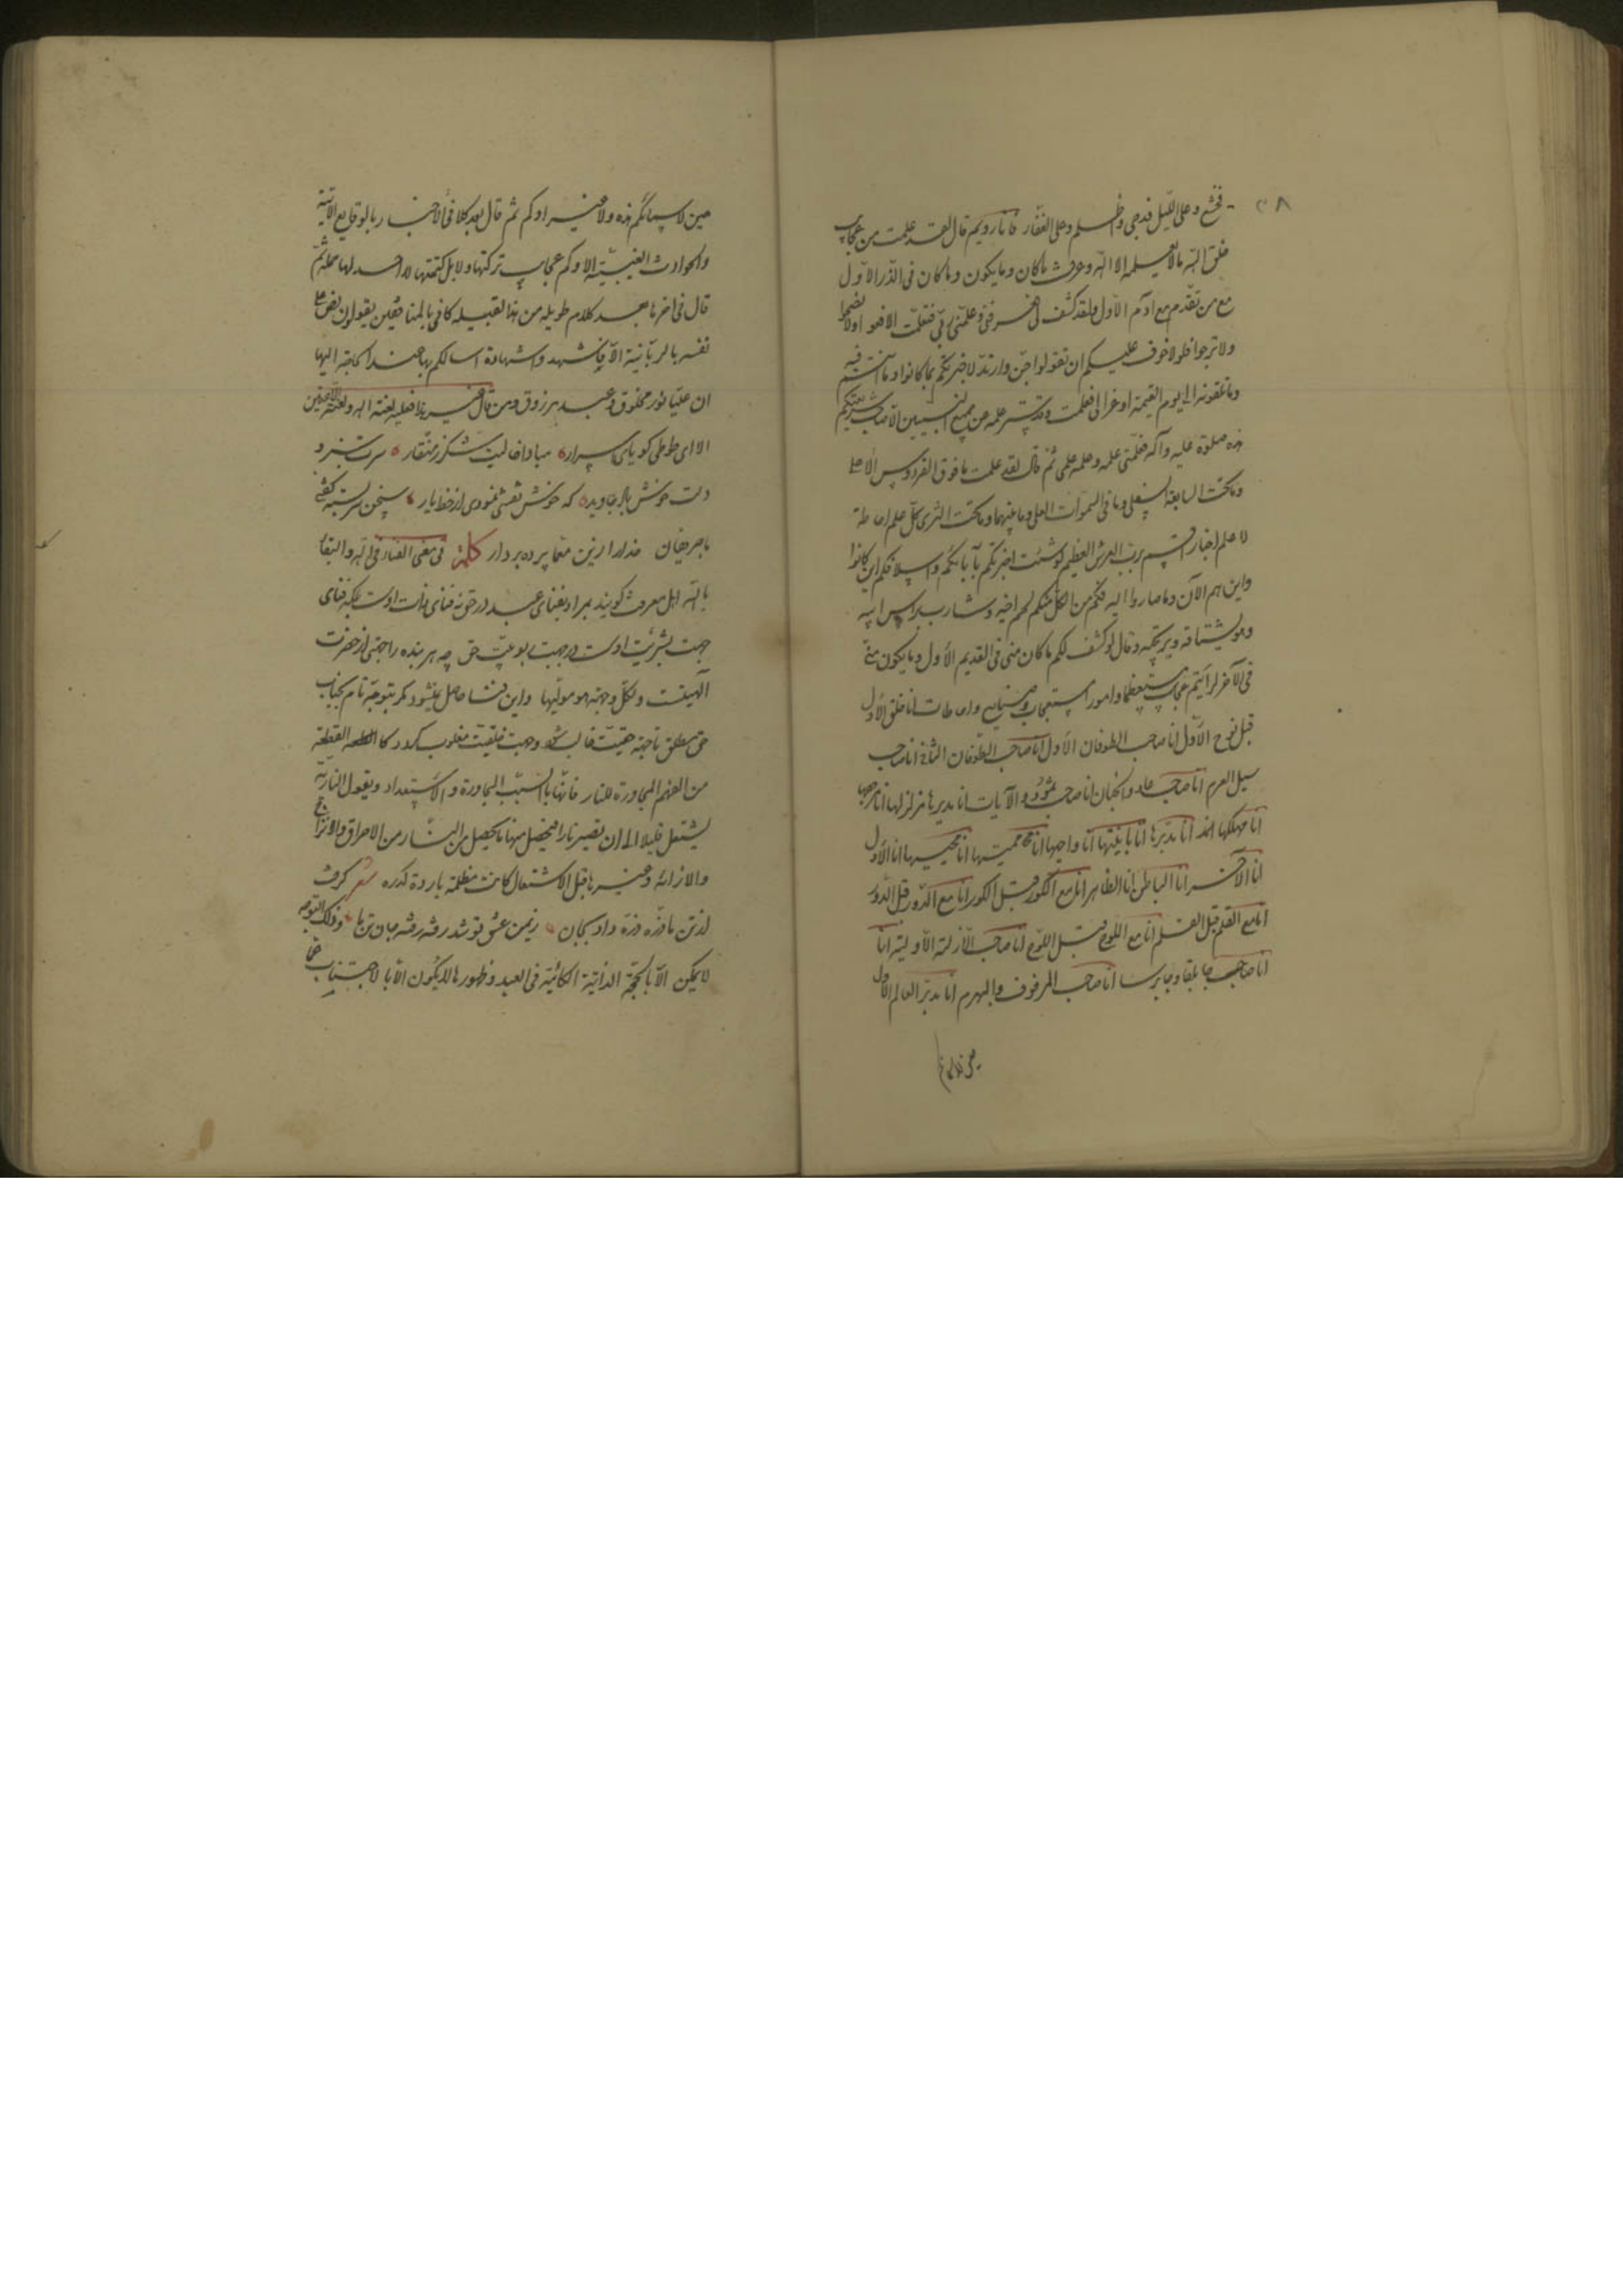 ٣٨
فخشع وعلی اللیل فدجی واظلم وعلی الغفار فانار ویم قال لقد علمت من عجایب
خلق الله مالا یعلمه الا الله وعرفت ماکان وما یکون وماکان فی الذر الاول
مع من تقدم مع آدم الاول ولقد کشف لی فعرفت وعلمنی ربی فتعلمت الا فعوا ولا تضجوا
ولا ترجوا فلولا خوفی علیکم ان تقولوا جن وارتد لاخبرتکم بما کانوا وما انتم فیه
وما تلقونه الی یوم القیمة اوعز الی فعلمت وقد ستر علمه من جمیع النبیین الا صاحب شریعتکم
هذه صلوة علیه وآله فعلمنی علمه وعلمه علمی ثم قال لقد علمت ما فوق الفردوس الاعلی
وما تحت السابعة السفلی وما فی السموات العلی وما بینهما وما تحت الثری کل علم احاطة
لا علم اخبار اقسم برب العرش العظیم لو شئت اخبرتکم بآبائکم واسلافکم این کانوا
واین هم الآن وما صاروا الیه فکم من آکل منکم لحم اخیه وشارب براس ابیه
وهو یشتاقه ویرتجیه وقال لو کشف لکم ما کان منی فی القدیم الاول وما یکون منی
فی الآخر لرأیتم عجایب مستعظما وامور مستعجبات وصنایع واحاطات انا خلق الاول
قبل نوح الاول انا صاحب الطوفان الاول انا صاحب الطوفان الثانی انا صاحب
سیل العرم انا صاحب عاد والجنان انا صاحب ثمود والآیات انا مدبرها مزلزلها انا مرجعها
انا مهلکها انا مدبرها انا بانیها انا داحیها انا ممیتها انا محییها انا الاول
انا الآخر انا الباطن انا الظاهر انا مع الکور قبل الکور انا مع الدور قبل الدور
انا مع القلم قبل القلم انا مع اللوح قبل اللوح انا صاحب الازلیة الاولیة انا
انا صاحب جابلقا وجابرسا انا صاحب الرفوف والبهرم انا مدبر العالم الاول
حین لا سمائکم هذه ولا غبراؤکم ثم قال بعد کلام فی الاخبار بالوقایع الآتیة
والحوادث الغیبیة الا وکم عجایب ترکتها ودلایل کتمتها لا اجد لها حملة ثم
قال فی آخرها بعد کلام طویلة من هذا القبیله کانی بالمنافقین یقولون نص علی
نفسه بالربانیة الا فاشهدوا شهادة اسالکم بها عند الحاجة الیها
ان علیا نور مخلوق وعبد مرزوق ومن قال غیر هذا فعلیه لعنة الله ولعنة اللاعنین
الا ای طوطی گویای اسرار مبادا خالیت شکر ز منقار سرت سبز و
دلت خوش باد جاوید که خوش نقشی نمودی از خط یار سخن سربسته گفتی
با حریفان خدا را زین معما پرده بردار کلمة فی معنی الفناء فی الله والبقاء
بالله اهل معرفت گویند مراد بفنای عبد در حق نه فنای ذات اوست بلکه فنای
جهت بشریت اوست در جهت ربوبیت حق چه هر بنده را جهتی از حضرت
الهیتست ولکل وجهة هو مولیها واین فنا حاصل نمیشود مگر بتوجه تام بجناب
حق مطلق تا جهة حقیت غالب شود وجهت خلقیت مغلوب گردد کالقطعة
من الفحم المجاورة للنار فانها بالسبب المجاورة والاستعداد وبقبول الناریة
یشتعل قلیلا الی ان تصیر نارا فیحصل منها ما یحصل من النار من الاحراق والانضاج
والانارة وغیرها قبل الاشتعال کانت مظلمة باردة کدره شعر گرفت
از تن ما ذره ذره داد بجان زیمن عشق تو شد رفته رفته جان تن ما وذلک التوجه
لا یمکن الا بالمحبة الذاتیة الکائنة فی العبد وظهورها لا یکون الا بالاجتناب عما